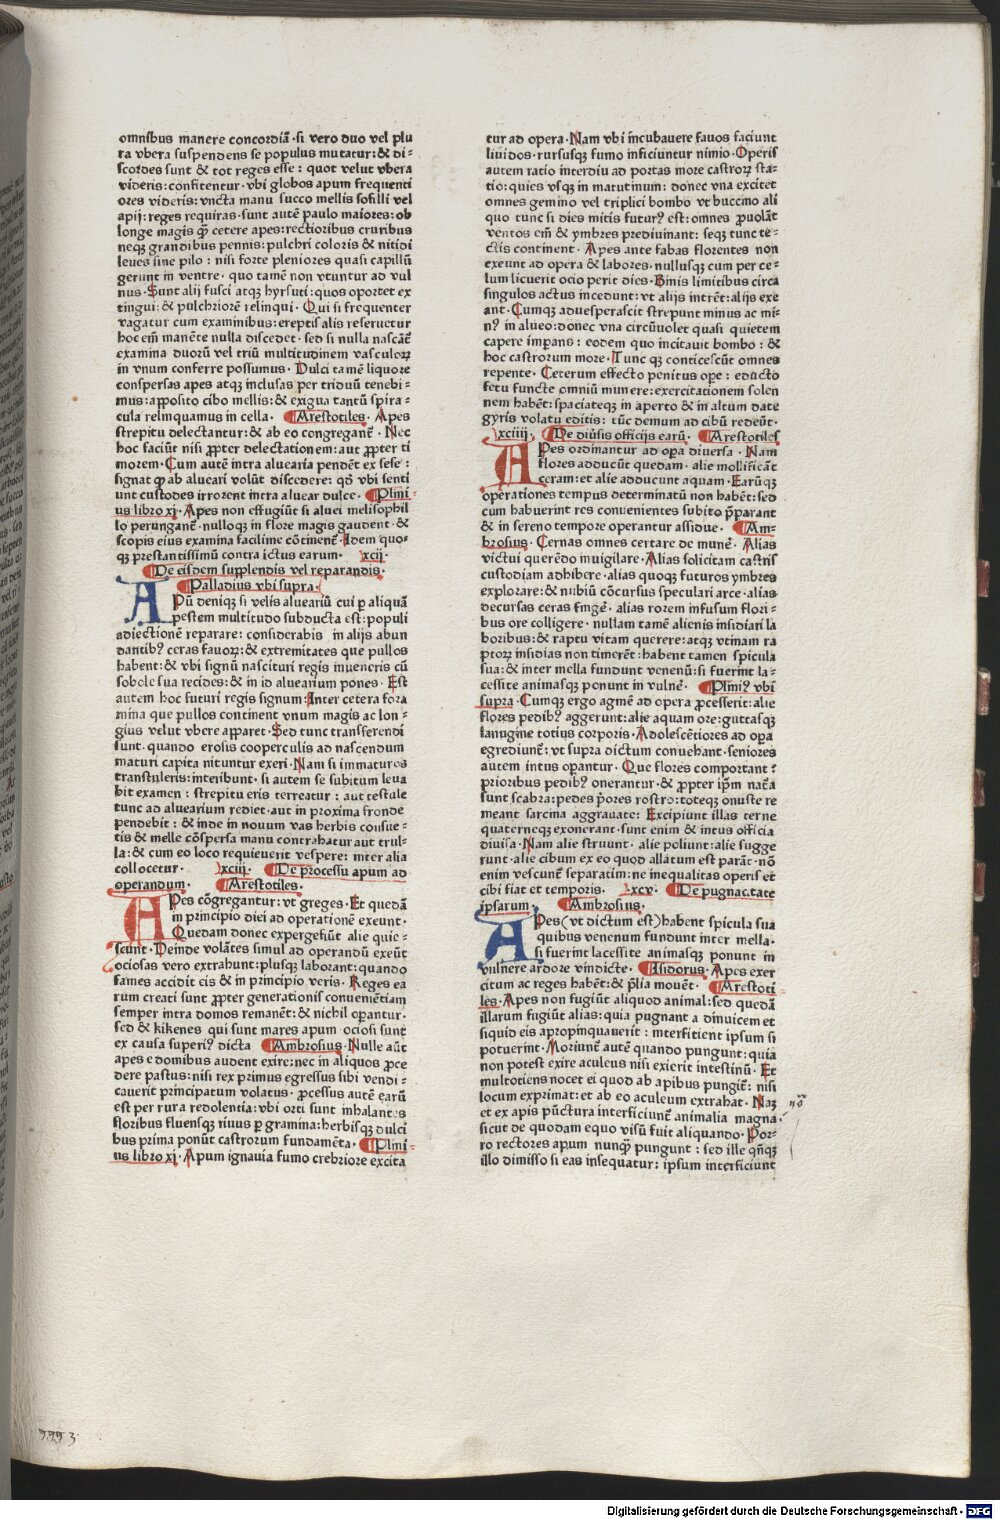 omnibus manere concordiā · si vero duo vel plu
ra vbera suspendens se populus mutatur: & di⸗
scordes sunt & tot reges esse : quot velut vbera
videris: confitentur · vbi globos apum frequenti
ores videris: vncta manu succo mellis sosilli vel
apij: reges requiras · sunt autē paulo maiores: ob
longe magis q̄ʒ cetere apes: rectioribus cruribus
neqʒ grandibus pennis: pulchri coloris & nitidi
leues sine pilo : nisi forte pleniores quasi capillū
gerunt in ventre · quo tamē non vtuntur ad vul
nus · Sunt alij fusci atqʒ hyrsuti: quos oportet ex
tingui: & pulchriorē relinqui · Qui si frequenter
vagatur cum examinibus: ereptis alis reseruetur
hoc em̄ manēte nulla discedet · sed si nulla nascāt̄
examina duorū vel triū multitudinem vasculoꝝ
in vnum conferre possumus · Dulci tamē liquore
conspersas apes atqʒ inclusas per triduū tenebi⸗
mus: apposito cibo mellis: & exigua tantū spira⸗
cula relinquamus in cella · Arestotiles · Apes
strepitu delectantur: & ab eo congregant̄ · Nec
hoc faciūt nisi ꝓpter delectationem: aut ꝓpter ti
morem · Cum autē intra aluearia pendēt ex sese :
signat qʒ ab alueari volūt discedere: qd̄ vbi senti
unt custodes irrorent intra aluear dulce · Plini⸗
us libro xj · Apes non effugiūt si aluei melisophil
lo perungant̄ · nulloqʒ in flore magis gaudent · &
scopis eius examina facilime cōtinent̄ · Idem quo⸗
qʒ prestantissimū contra ictus earum · xcij ·
De eisdem supplendis vel reparandis ·
Palladius vbi supra ·
APū deniqʒ si velis alueariū cui ꝑ aliquā
pestem multitudo subducta est: populi
adiectionē reparare: considerabis in alijs abun
dantibꝰ ceras fauoꝝ: & extremitates que pullos
habent: & vbi signū nascituri regis inueneris cū
sobole sua recides: & in id aluearium pones · Est
autem hoc futuri regis signum: Inter cetera fora
mina que pullos continent vnum magis ac lon⸗
gius velut vbere apparet · Sed tunc transferendi
sunt · quando erosis cooperculis ad nascendum
maturi capita nituntur exeri · Nam si immaturos
transtuleris: interibunt · si autem se subitum leua
bit examen : strepitu eris terreatur : aut testule
tunc ad aluearium rediet · aut in proxima fronde
pendebit : & inde in nouum vas herbis consue⸗
tis & melle cōspersa manu contrahatur aut trul⸗
la: & cum eo loco requieuerit vespere: inter alia
collocetur · xciij · De processu apum ad
operandum · Arestotiles ·
APes cōgregantur: vt greges · Et quedā
in principio diei ad operationē exeunt ·
Quedam donec expergefiūt alie quie⸗
scunt · Deinde volātes simul ad operandū exeūt
ociosas vero extrahunt: plusqʒ laborant: quando
fames accidit eis & in principio veris · Reges ea
rum creati sunt ꝓpter generationis conuenētiam
semper intra domos remanēt: & nichil oꝑantur ·
sed & kikenes qui sunt mares apum ociosi sunt
ex causa superiꝰ dicta Ambrosius · Nulle aūt
apes e domibus audent exire: nec in aliquos ꝓce
dere pastus: nisi rex primus egressus sibi vendi⸗
cauerit principatum volatus · ꝓcessus autē earū
est per rura redolentia: vbi orti sunt inhalantes
floribus fluensqʒ riuus ꝑ gramina: herbisqʒ dulci
bus prima ponūt castrorum fundamēta · Plini⸗
us libro xj · Apum ignauia fumo crebriore excita
tur ad opera · Nam vbi incubauere fauos faciunt
liuidos · rursusqʒ fumo inficiuntur nimio · Operis
autem ratio interdiu ad portas more castroꝝ sta⸗
tio: quies vsqʒ in matutinum: donec vna excitet
omnes gemino vel triplici bombo vt buccino ali
quo tunc si dies mitis futurꝰ est: omnes ꝓuolāt
ventos em̄ & ymbres prediuinant: seqʒ tunc te⸗
ctis continent · Apes ante fabas florentes non
exeunt ad opera & labores · nullusqʒ cum per ce⸗
lum licuerit ocio perit dies · Binis limitibus circa
singulos actus incedunt: vt alijs intrēt: alijs exe
ant · Cumqʒ aduesperascit strepunt minus ac mi⸗
nꝰ in alueo: donec vna circūuolet quasi quietem
capere imꝑans : eodem quo incitauit bombo : &
hoc castrorum more · Tunc qʒ conticescūt omnes
repente · Ceterum effecto penitus oꝑe : educto
fetu functe omniū munere: exercitationem solen
nem habēt: spaciateqʒ in aperto & in altum date
gyris volatu editis : tūc demum ad cibū redeūt ·
xciiij · De diūsis officijs earū · Arestotiles
APes ordinantur ad oꝑa diuersa · Nam
flores adducūt quedam · alie mollificāt
ceram: et alie adducunt aquam · Earūqʒ
operationes tempus determinatū non habēt: sed
cum habuerint res conuenientes subito p̄parant
& in sereno tempore operantur assidue · Am⸗
brosius · Cernas omnes certare de munē · Alias
victui querēdo inuigilare · Alias solicitam castris
custodiam adhibere · alias quoqʒ futuros ymbres
explorare: & nubiū cōcursus speculari arce · alias
decursas ceras fingē · alias rorem infusum flori⸗
bus ore colligere · nullam tamē alienis insidiari la
boribus: & raptu vitam querere: atqʒ vtinam ra
ptoꝝ insidias non timerēt: habent tamen spicula
sua: & inter mella fundunt venenū: si fuerint la⸗
cessite animasqʒ ponunt in vulnē · Pliniꝰ vbi
supra · Cumqʒ ergo agmē ad opera ꝓcesserit: alie
flores pedibꝰ aggerunt: alie aquam ore: guttasqʒ
lanugine totius corporis · Adolescētiores ad oꝑa
egrediunt̄: vt supra dictum conuehant · seniores
autem intus oꝑantur · Que flores comportant :
prioribus pedibꝰ onerantur · & ꝓpter ip̄m nat̄a
sunt scabra: pedes p̄ores rostro: toteqʒ onuste re
meant sarcina aggrauate: Excipiunt illas terne
quaterneqʒ exonerant · sunt enim & intus officia
diuisa · Nam alie struunt · alie poliunt: alie sugge
runt · alie cibum ex eo quod allatum est parāt · nō
enim vescunt̄ separatim: ne inequalitas operis et
cibi fiat et temporis · xcv · De pugnacitate
ipsarum · Ambrosius ·
APes (vt dictum est) habent spicula sua
quibus venenum fundunt inter mella ·
si fuerint lacessite animasqʒ ponunt in
vulnere ardore vindicte · Isidorus · Apes exer
citum ac reges habēt: & p̄lia mouēt · Arestoti
les · Apes non fugiūt aliquod animal: sed quedā
illarum fugiūt alias: quia pugnant a dinuicem et
siquid eis apropinquauerit : interfitient ipsum si
potuerint · Moriunt̄ autē quando pungunt: quia
non potest exire aculeus nisi exierit intestinū · Et
multotiens nocet ei quod ab apibus pungit̄: nisi
locum exprimat: et ab eo aculeum extrahat · Naʒ
et ex apis pūctura interficiunt̄ animalia magna ·
sicut de quodam equo visū fuit aliquando · Por⸗
ro rectores apum nunqʒ pungunt : sed ille qn̄qʒ
illo dimisso si eas insequatur: ipsum interficiunt
Digitalisierung gefördert durch die Deutsche Forschungsgemeinschaft · DFG